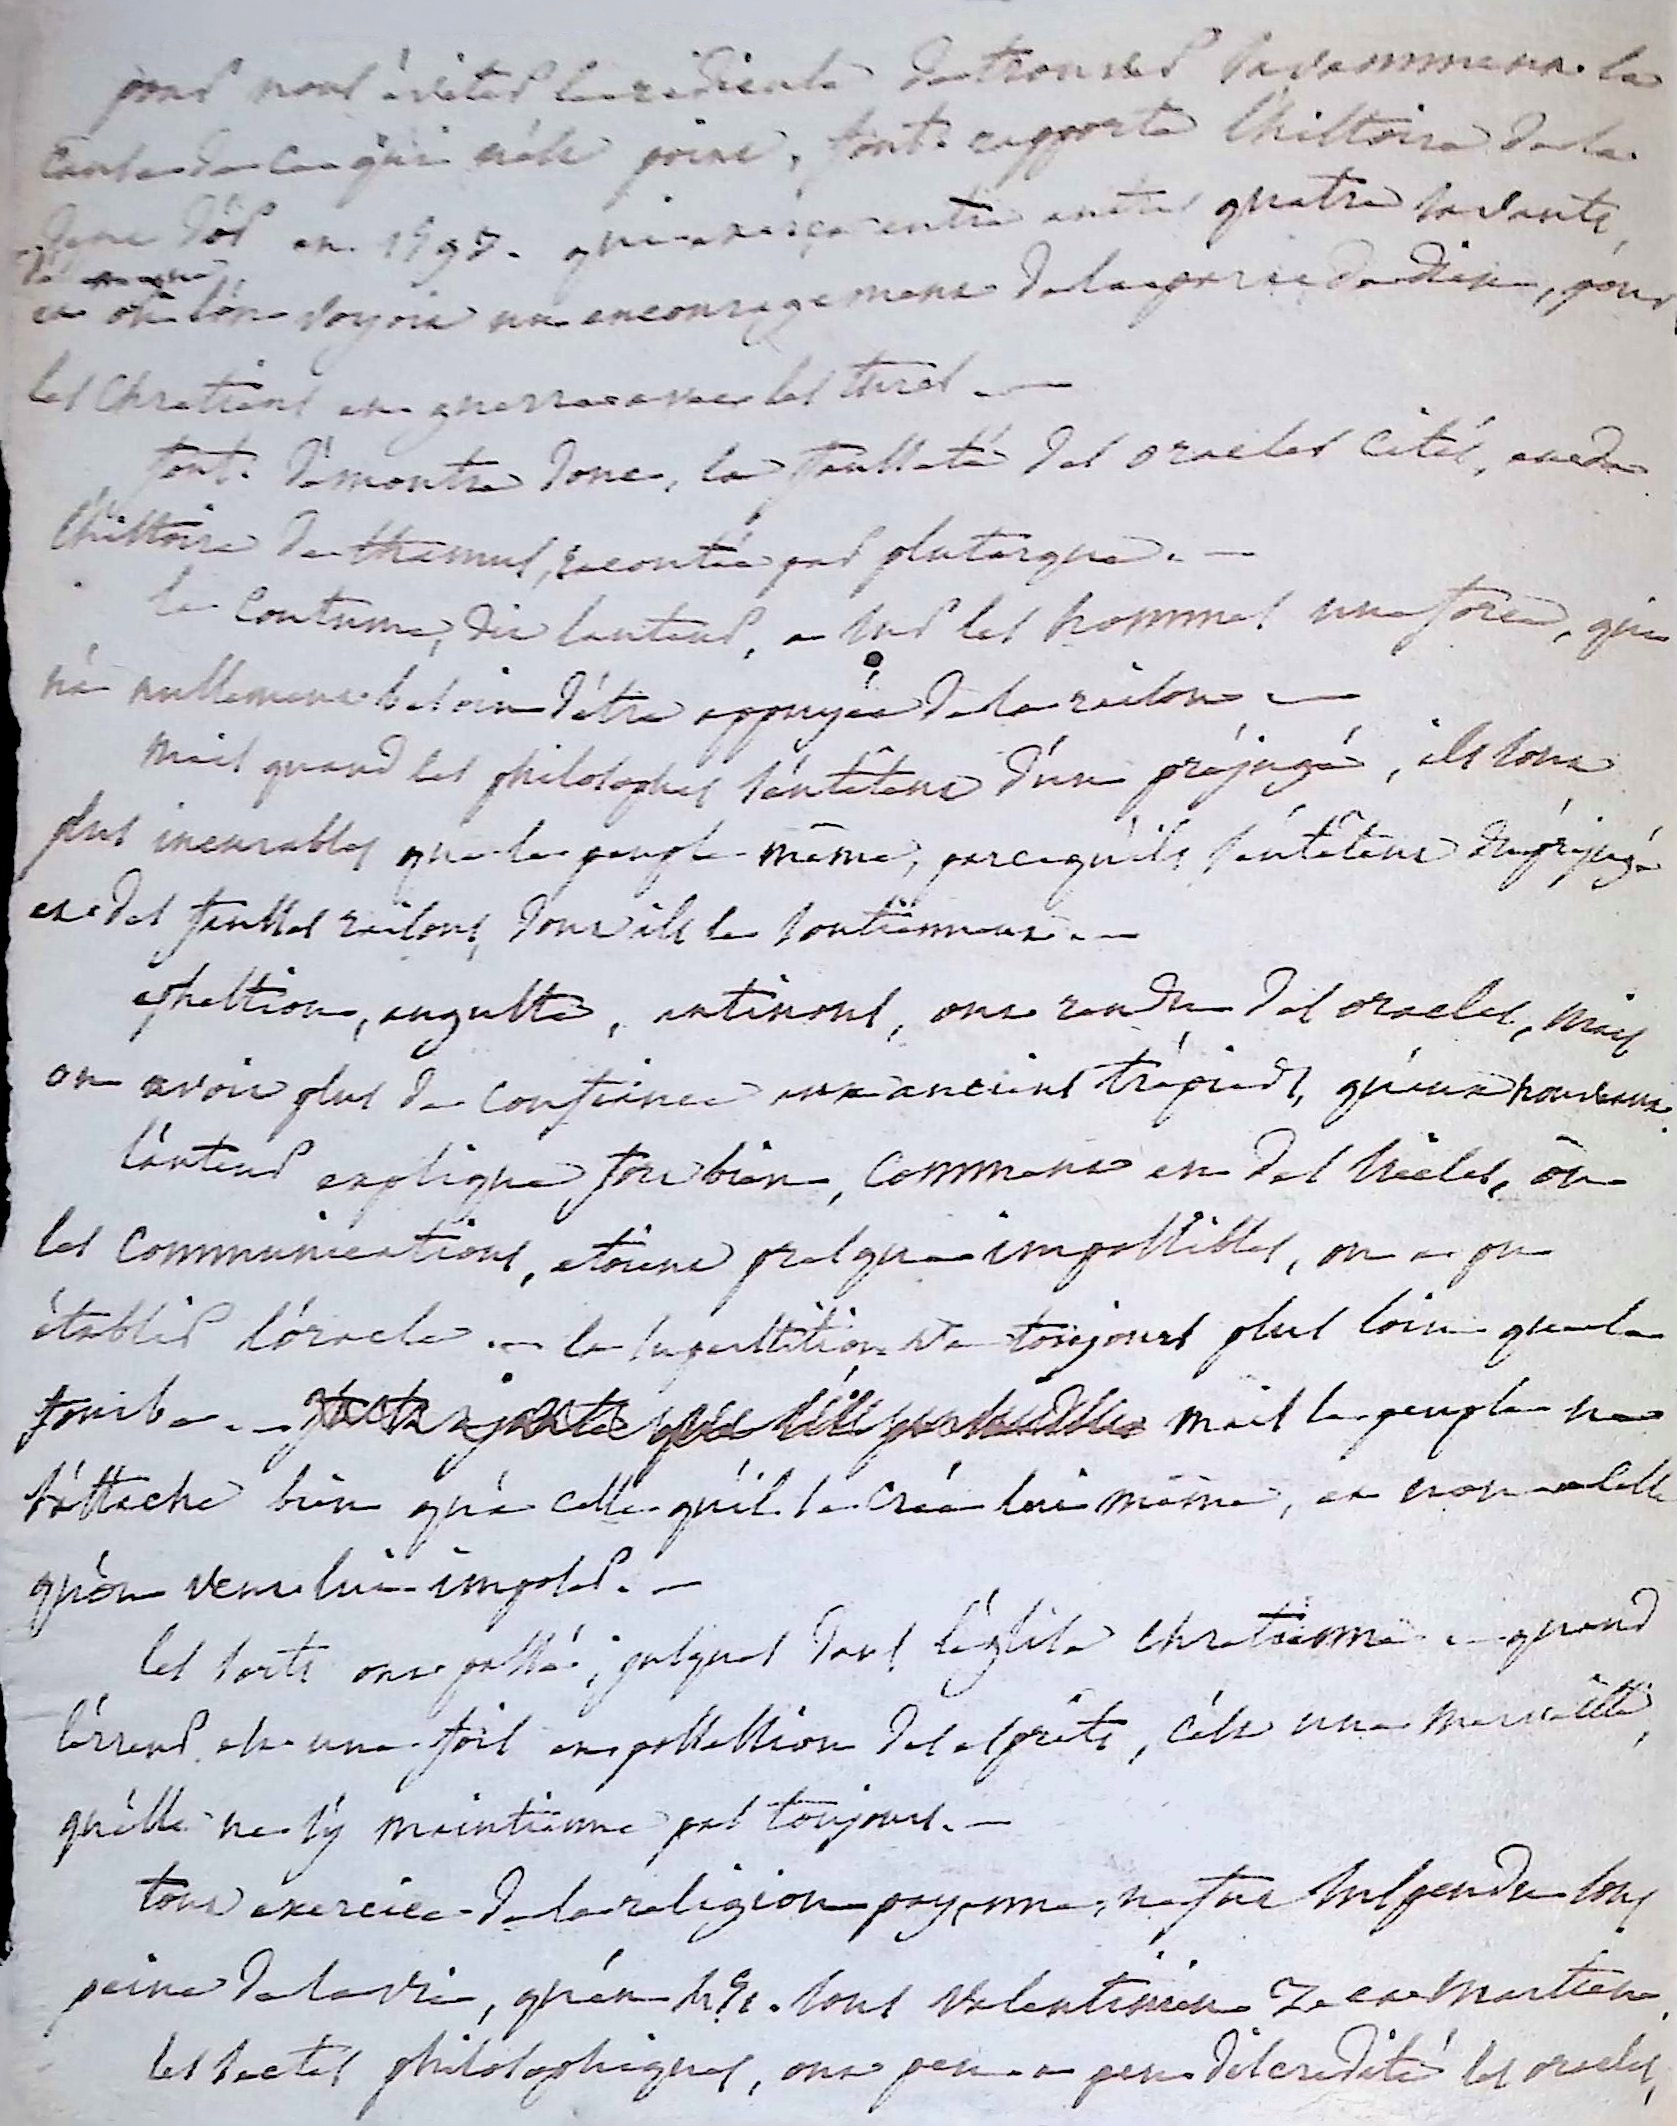 pour nous éviter le ridicule de trouver savamment la
cause de ce qui n'est point, font. rapporte l'histoire de la
dent d'or en 1593. qui exerça entre autres quatre savants
et où l'on voyoit un encouragement de la part de dieu, pour
les chretiens en guerre avec les turcs. —
font. démontre donc, la fausseté des oracles cités, et de
l'histoire de thamus, racontée par plutarque. —
la coutume, dit l'auteur, a sur les hommes une force, qui
n'a nullement besoin d'être appuyée de la raison. —
mais quand les philosophes s'entêtent d'un préjugé, ils sont
plus incurables que le peuple même, parcequ'ils s'entêtent du préjugé
et des fausses raisons, dont ils le soutiennent. —
ephestion, auguste, antinous, ont rendu des oracles, mais
on avoit plus de confiance aux anciens trépieds, qu'aux nouveaux.
l'auteur explique fort bien, comment en des siècles, où
les communications, étoient presque impossibles, on a pu
établir l'oracle. — la superstition va toujours plus loin que la
fourbe. — mais le peuple ne
s'attache bien qu'à celle qu'il se crée lui même, et non a celle
qu'on veut lui imposer. —
les sorts ont passé, jusques dans l'église chretienne — quand
l'erreur est une fois en possession des esprits, c'est une merveille,
qu'elle ne s'y maintienne pas toujours. —
tout exercice de la religion payenne, ne fut suspendu sous
peine de la vie, qu'en 451. sous valentinien 3 et martien.
les sectes philosophiques, ont peu a peu discredité les oracles,